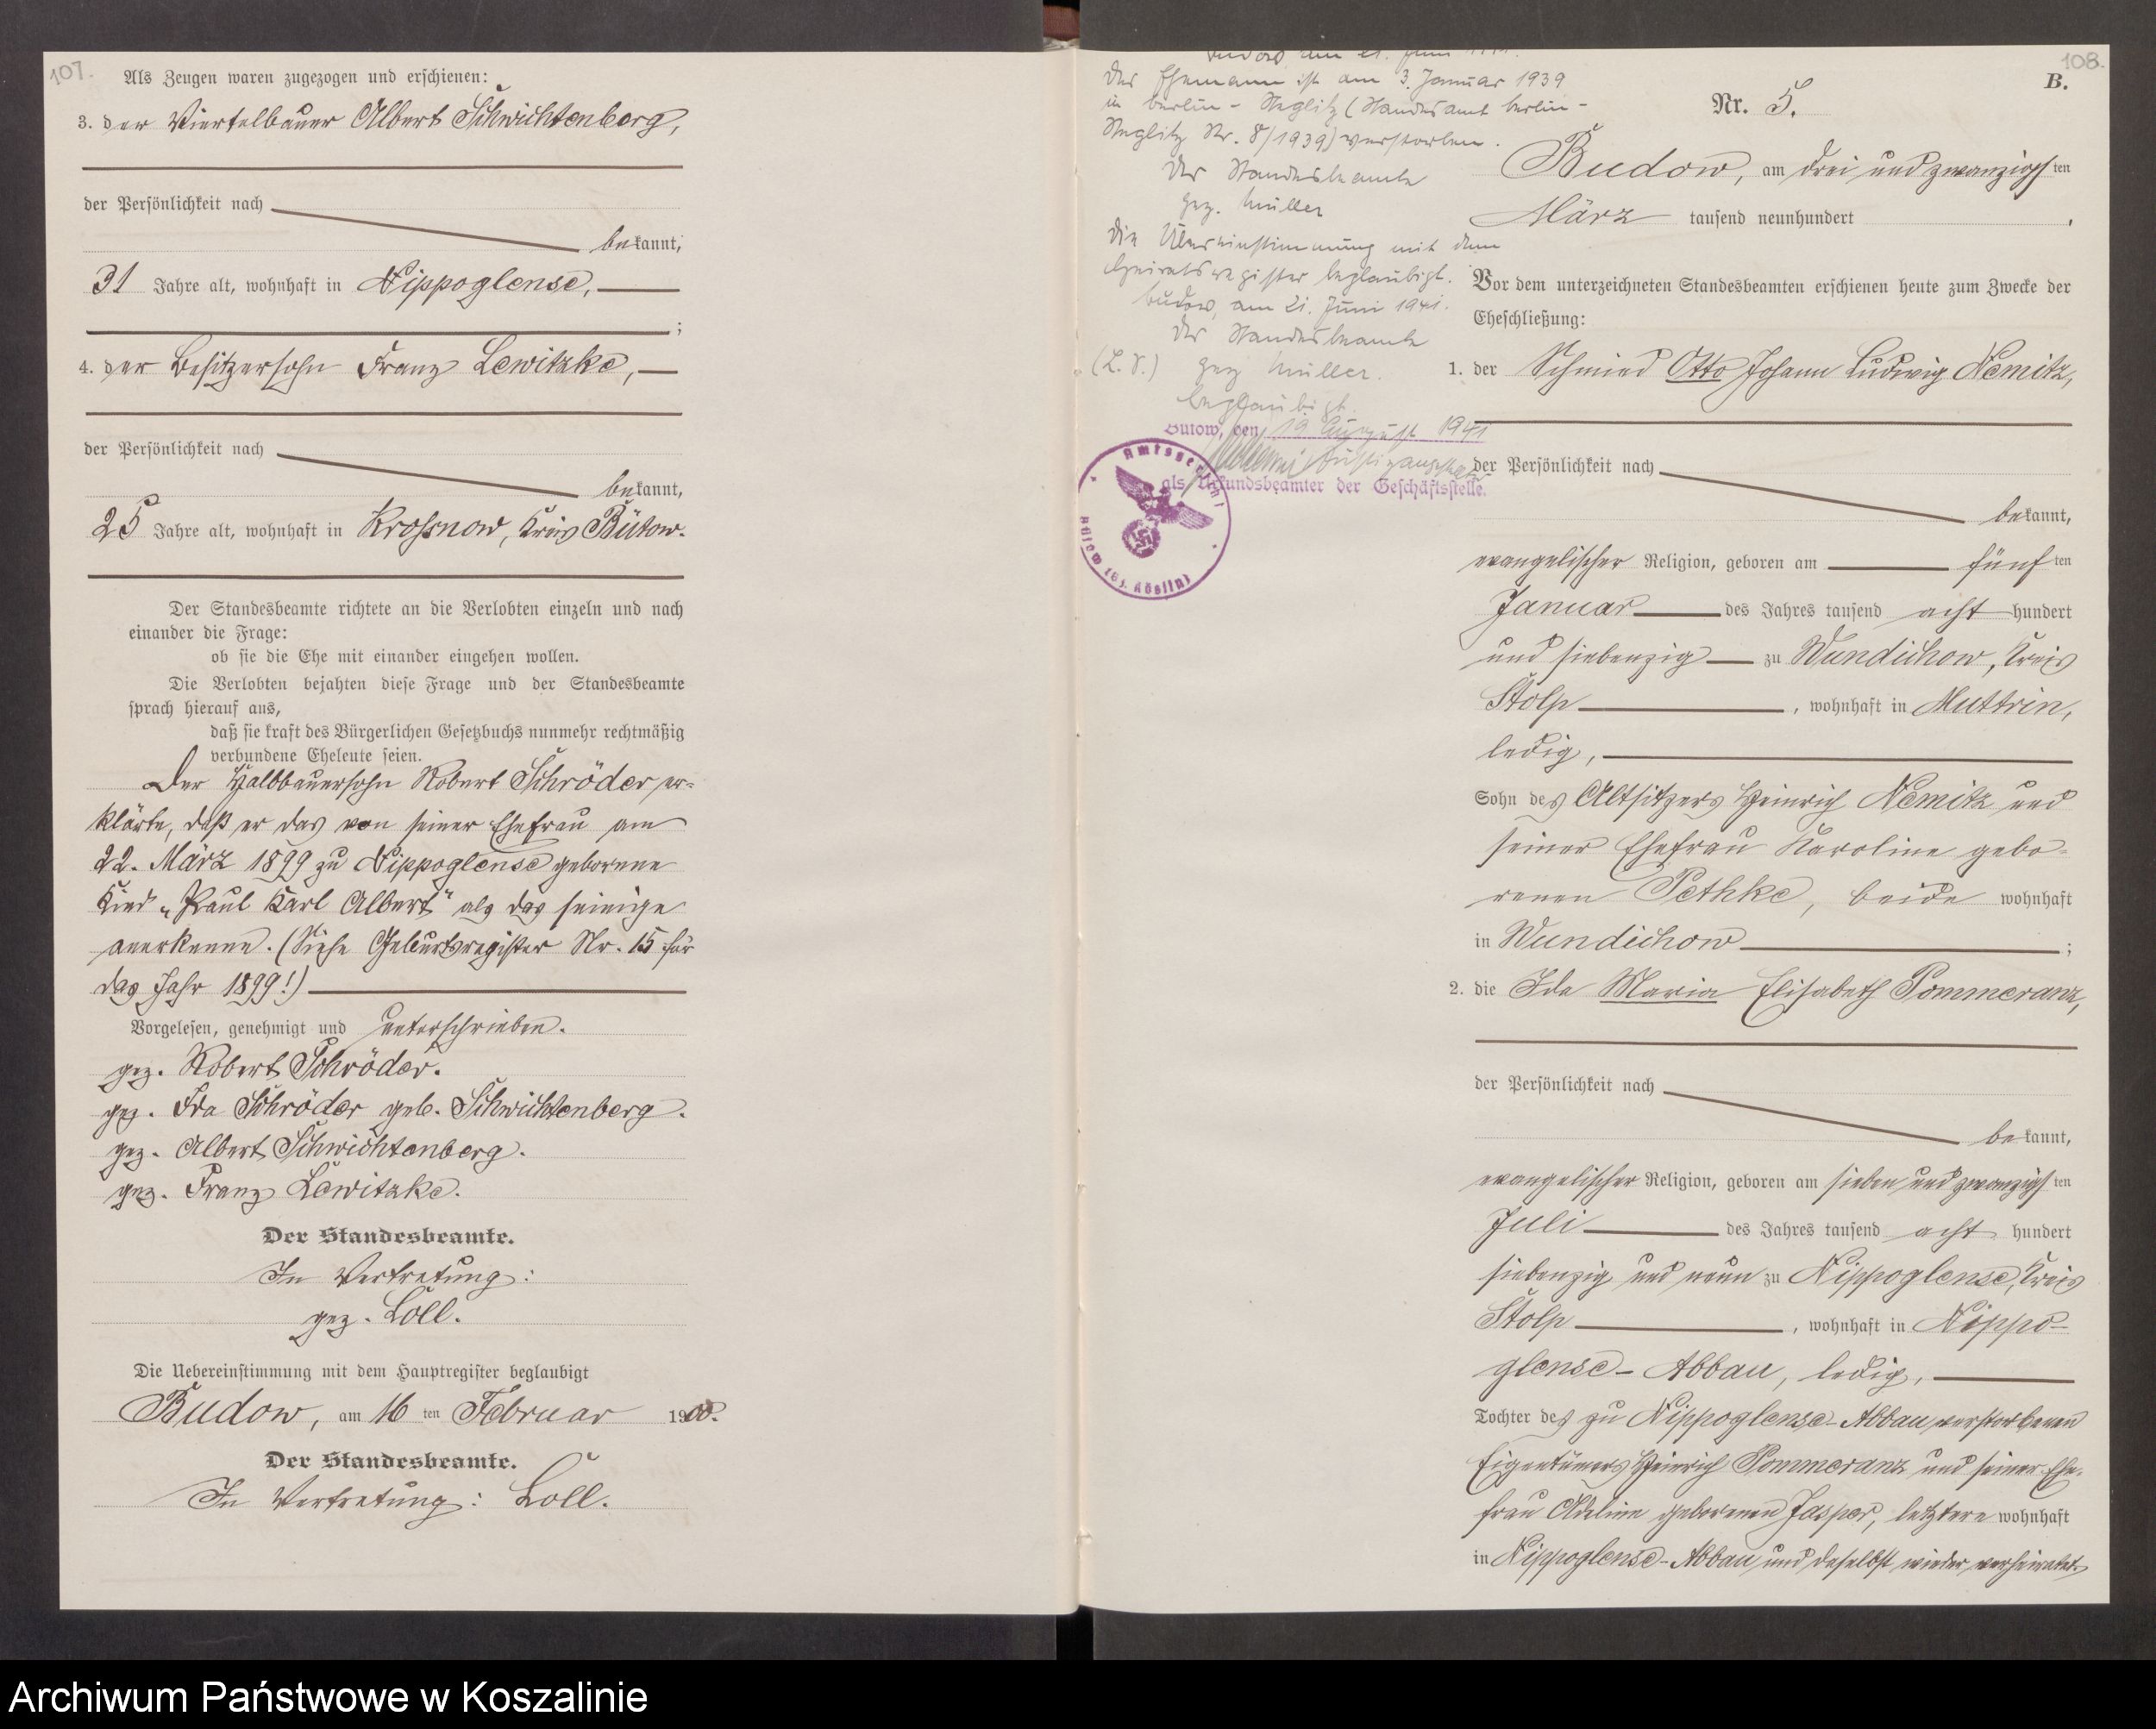 107.
Als Zeugen waren zugezogen und erschienen:
3. der Viertelbauer Albert Schwichtenberg,
der Persönlichkeit nach
bekannt,
31 Jahre alt, wohnhaft in Nippoglense,
;
4. der Besitzersohn Franz Lewitzke,
der Persönlichkeit nach
bekannt,
25 Jahre alt, wohnhaft in Krossnow, Kreis Bütow.
Der Standesbeamte richtete an die Verlobten einzeln und nach
einander die Frage:
ob sie die Ehe mit einander eingehen wollen.
Die Verlobten bejahten diese Frage und der Standesbeamte
sprach hierauf aus,
daß sie kraft des Bürgerlichen Gesetzbuchs nunmehr rechtmäßig
verbundene Eheleute seien.
Der Halbbauersohn Robert Schröder er-
klärte, daß er das von seiner Ehefrau am
22. März 1899 zu Nippoglense geborene
Kind „Paul Karl Albert“ als das seinige
anerkenne. (Siehe Geburtsregister Nr. 15 für
das Jahr 1899!)
Vorgelesen, genehmigt und unterschrieben.
gez. Robert Schröder.
gez. Ida Schröder geb. Schwichtenberg.
gez. Albert Schwichtenberg.
gez. Franz Lewitzke.
Der Standesbeamte.
In Vertretung:
gez. Loll.
Die Uebereinstimmung mit dem Hauptregister beglaubigt
Budow, am 16 ten Februar 1900.
Der Standesbeamte.
In Vertretung: Loll.
108.
Budow den 21. Juni
Der Ehemann ist am 3. Januar 1939
in Berlin-Steglitz (Standesamt Berlin-
Steglitz Nr. 8/1939) verstorben.
Der Standesbeamte
gez. Müller
Die Übereinstimmung mit dem
Heiratsregister beglaubigt.
Budow, am 21. Juni 1941.
Der Standesbeamte
(L.S.) gez Müller.
beglaubigt.
Bütow, den 19 August 1941
als Urkundsbeamter der Geschäftsstelle.
Amtsgericht
Bütow (Bz. Köslin)
B.
Nr. 5.
Budow, am drei und zwanzigsten
März tausend neunhundert .
Vor dem unterzeichneten Standesbeamten erschienen heute zum Zwecke der
Eheschließung:
1. der Schmied Otto Johann Ludwig Nemitz,
der Persönlichkeit nach
bekannt,
evangelischer Religion, geboren am fünften
Januar des Jahres tausend acht hundert
und siebenzig zu Wundichow, Kreis
Stolp, wohnhaft in Muttrin,
ledig,
Sohn des Altsitzers Heinrich Nemitz und
seiner Ehefrau Karoline gebo-
renen Pethke, beide wohnhaft
in Wundichow ;
2. die Ida Maria Elisabeth Pommeranz,
der Persönlichkeit nach
bekannt,
evangelischer Religion, geboren am sieben und zwanzigsten
Juli des Jahres tausend acht hundert
siebenzig und neun zu Nippoglense, Kreis
Stolp, wohnhaft in Nippo-
glense-Abbau, ledig,
Tochter des zu Nippoglense-Abbau verstorbenen
Eigentümers Heinrich Pommeranz und seiner Ehe-
frau Adeline geborenen Jasper, letztere wohnhaft
in Nippoglense-Abbau und daselbst wieder verheiratet.
Archiwum Państwowe w Koszalinie